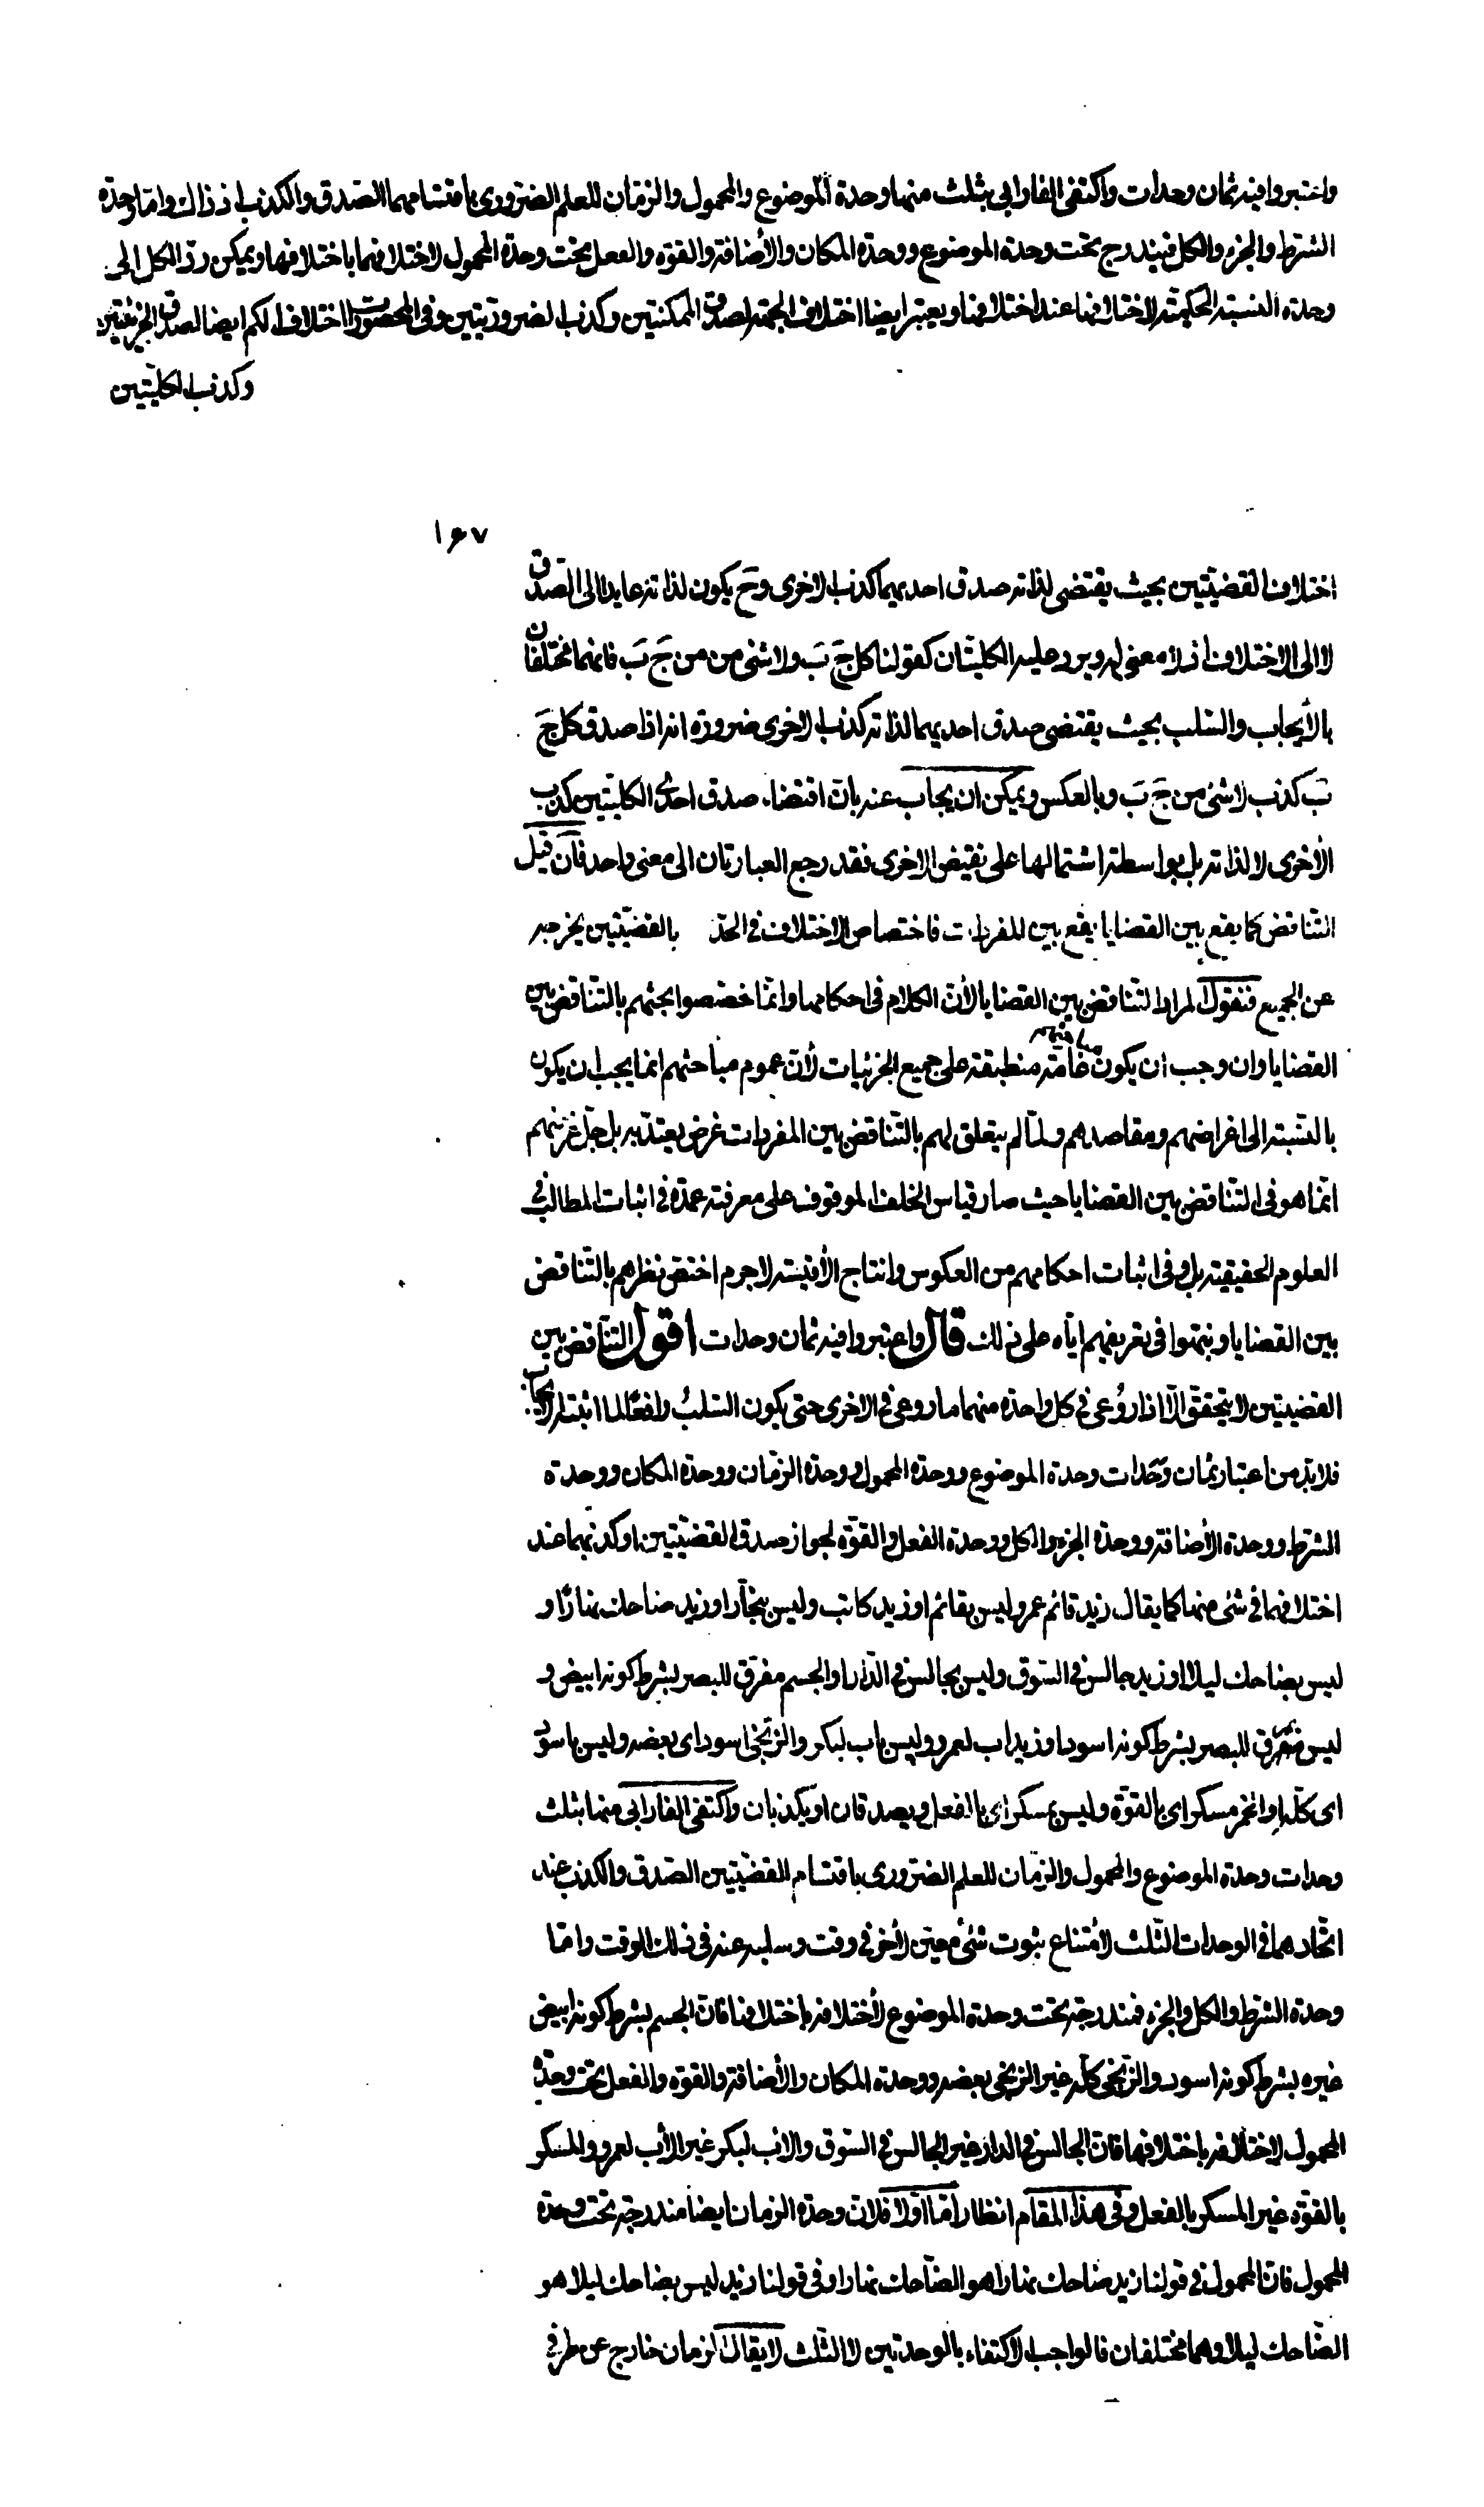 واعتبروا فيه ثمان وحدات واكتفى الفارابى بثلث منها وحدة الموضوع والمحمول والزمان للعلم الضرورى باقتسامهما الصدق والكذب اذ ذاك وامّا وحدة
الشرط والجزء والكل فيندرج تحت وحدة الموضوع ووحدة المكان والأضافة والقوة والفعل تحت وحدة المحمول لاختلافهما باختلافها ويمكن ردّ الكل الى
وحدة النسبة الحكمية لاختلافها عند اختلافها ويعتبر ايضا اختلاف الجهة لصدق الممكنتين وكذب الضروريتين وفى المحصورات اختلاف الكم ايضا لصدق الجزئيتين
وكذب الكليّتين
١۶٧
اختلاف القضيّتين بحيث يقتضى لذاته صدق احديهما كذب الاخرى وحَ يكون لذاته عايدا الى الصّدق
لا الى الاختلاف اذ لا معنى له ويرد عليه الكليّتان كقولنا كل جَ بَ ولا شئ من من جَ بَ فانهما مختلفان
بالأيجاب والسّلب بحيث يقتضى صدق احديهما لذاته كذب الاخرى ضرورة انه اذا صدق كل جَ
بَ كذب لا شئ من جَ بَ وبالعكس ويمكن ان يجاب عنه بانّ اقتضاء صدق احدى الكليّتين كذب
الأخرى لا لذاته بل بواسطة اشتمالها على نقيض الاخرى فقد رجع العبارتان الى معنى واحد فان قيل
التّناقض كما يقع بين القضايا يقع بين المفردات فاختصاص الاختلاف فى الحدّ بالقضيّتين يخرجه
عن الجميع فنقول المراد التّناقض بين القضايا لأنّ الكلام فى احكامها وانّما خصّصوا بحثهم بالتّناقض بين
القضايا وان وجب ان يكون مباحثهم عامّة منطبقة على جميع الجزئيات لأنّ عموم مباحثهم انما يجب ان يكون
بالنّسبة الى اغراضهم ومقاصدهم ولمّا لم يتعلق لهم بالتّناقض بين المفردات غرض يعتدّ به بل جلّ غرضهم
انّما هو فى التّناقض بين القضايا حيث صار قياس الخلف الموقوف على معرفته عمدة فى اثبات المطالب فى
العلوم الحقيقية بل وفى اثبات احكامهم من العكوس وانتاج الأقيسة لا جرم اختصّ نظرهم بالتّناقض
بين القضايا ونبّهوا فى تعريفهم ايّاه على ذلك قال واعتبروا فيه ثمان وحدات اقول التّناقض بين
القضيتين لا يتحقق الّا اذا روُعى فى كل واحدة منهما ما روعى فى الاخرى حتى يكون السّلب رافعًا لما اثبته الايجاب
فلا بدّ من اعتبار ثمان وَحَدات وحدة الموضوع ووحدة المحمول ووحدة الزمّان ووحدة المكان ووحدة
الشرط ووحدة الأضافة ووحدة الجزء والكل ووحدة الفعل والقوّة لجواز صدق القضيّتين او كذبهما عند
اختلافهما فى شئ منها كما يقال زيد قائم عمرو ليس بقائم او زيد كاتب وليس بنجّار او زيد ضاحك نهارًا و
ليس بضاحك ليلا او زيد جالس فى السّوق وليس بجالس فى الدّار او الجسم مفرّق للبصر بشرط كونه ابيض و
ليس مفرّق للبصر بشرط كونه اسود او زيد اب لعمرو وليس باب لبكر والزنجى اسود اى بعضه وليس باسود
اى كلّه او الخمر مسكر اى بالقوّة وليس بمسكر اى بالفعل ويصدقان او يكذبان واكتفى الفارابى منها بثلث
وحدات وحدة الموضوع والمحمول والزمّان للعلم الضرورى باقتسام القضيّتين الصّدق والكذب عند
اتّحادهما فى الوحدات الثّلث لأمتناع ثبوت شئ معيّن لأخر فى وقت وسلبه عنه فى ذلك الوقت وامّا
وحدة الشرط والكل والجزء فمندرجة تحت وحدة الموضوع لأختلافه باختلافها فانّ الجسم بشرط كونه ابيض
غيره بشرط كونه اسود والزّنجى كلّه غير الزنجى بعضه ووحدة المكان والأضافة والقوة والفعل تحت وحدة
المحمول لاختلافه باختلافها فانّ الجالس فى الدار غير الجالس فى السّوق والاب لبكر غير الأب لعمرو والمسكر
بالقوّة غير المسكر بالفعل وفى هذا المقام انظار امّا اوّلا فلانّ وحدة الزمان ايضا مندرجة تحت وحدة
المحمول فانّ المحمول فى قولنا زيد ضاحك نهارا هو الضّاحك نهارا وفى قولنا زيد ليس بضاحك ليلا هو
الضّاحك ليلا وهما مختلفان فالواجب الاكتفاء بالوحدتين لا الثّلث لا يقال الزمان خارج عن طرفى